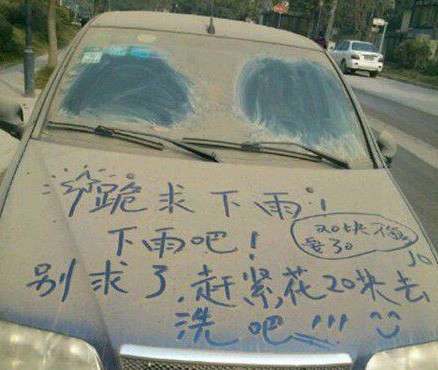 跪求下雨!
下雨吧!
20块不值
要30
别求了,赶紧花20块去
洗吧!!!